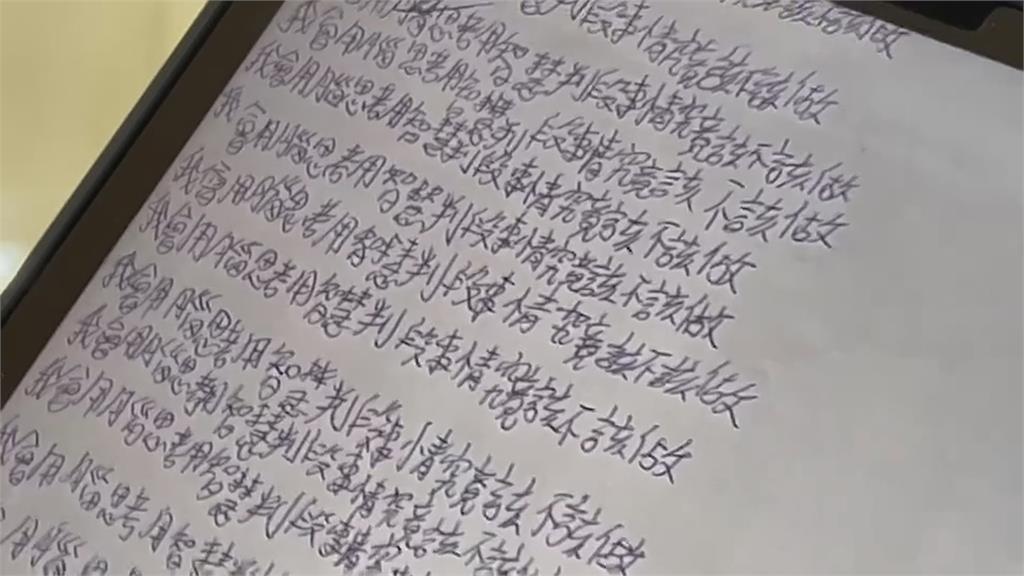 該不該做
我會用腦思考用智慧判段事情該不該做
我會用腦思考用智慧判段事情究竟該不該做
我會用腦思考用智慧判段事情究竟該不該做
我會用腦思考用智慧判段事情究竟該不該做
我會用腦思考用智慧判段事情究竟該不該做
我會用腦思考用智慧判段事情究竟該不該做
我會用腦思考用智慧判段事情究竟該不該做
我會用腦思考用智慧判段事情究竟該不該做
我會用腦思考用智慧判段事情究竟該不該做
我會用腦思考用智慧判段事情究竟該不該做
我會用腦思考用智慧判
用腦思